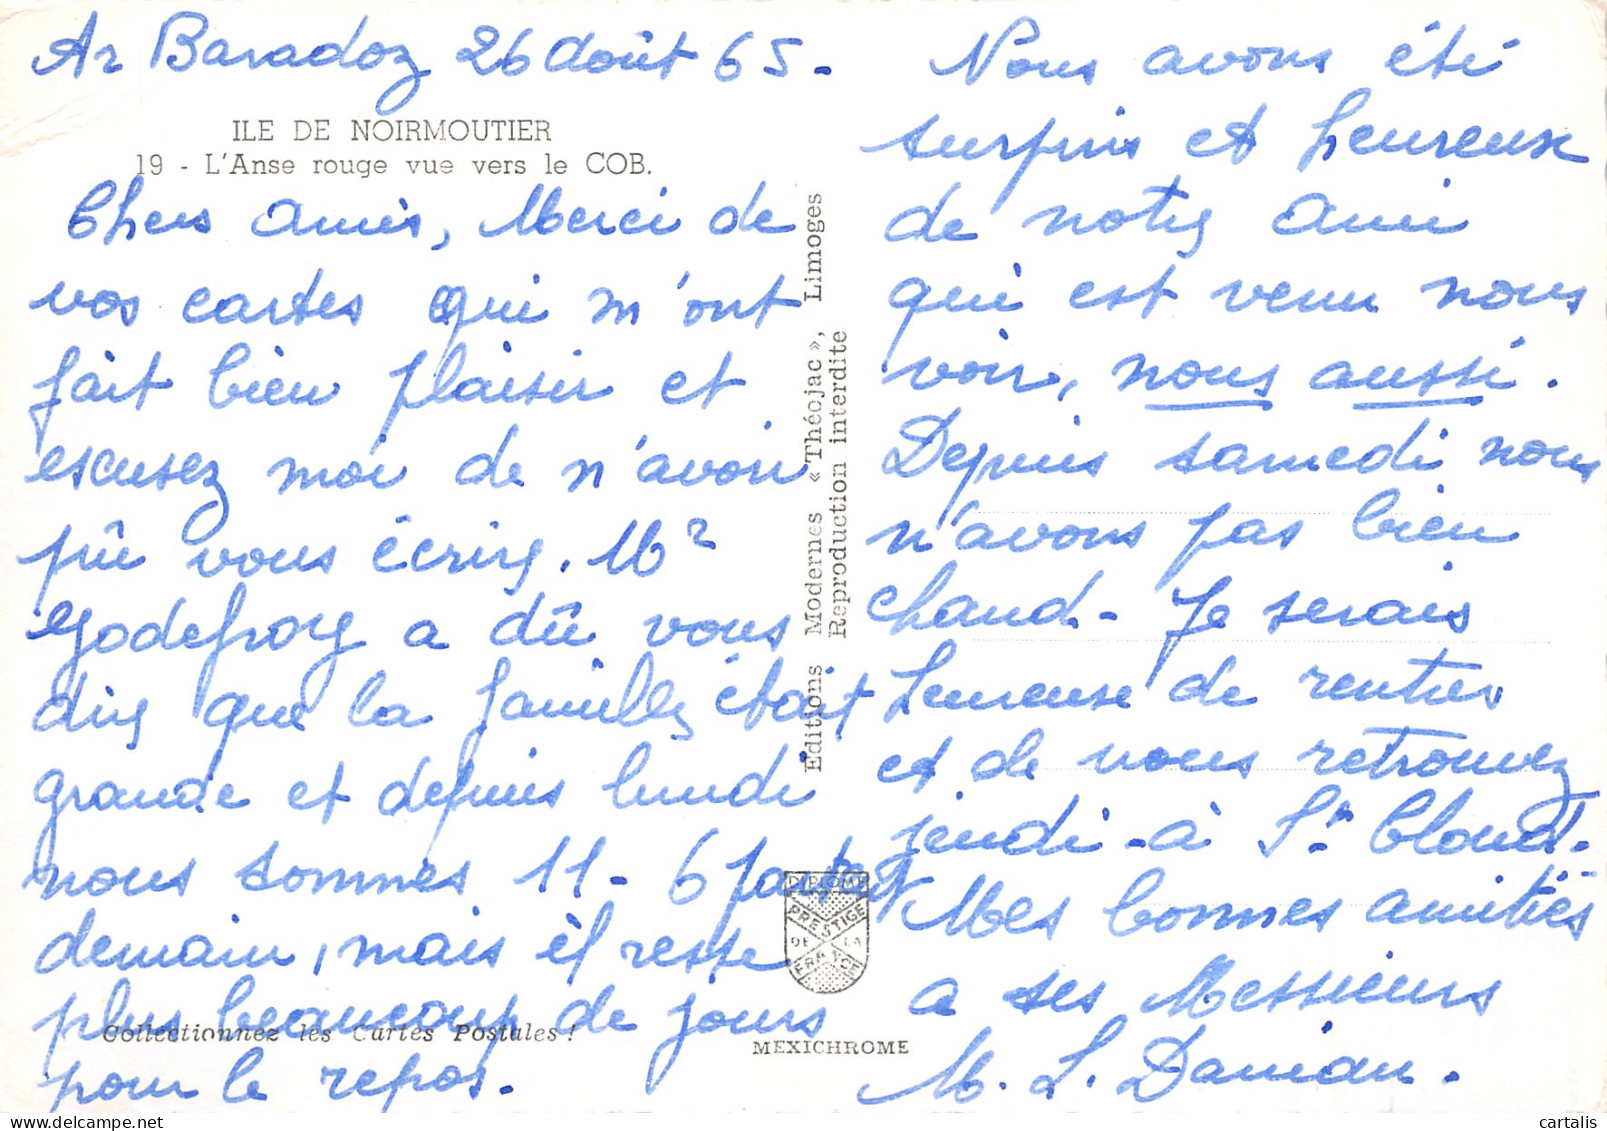 Ar Baradoz 26 Août 65.
ILE DE NOIRMOUTIER
19 - L'Anse rouge vue vers le COB.
Chers Amis, Merci de
vos cartes qui m'ont
fait bien plaisir et
escusez moi de n'avoir
pû vous écrire. Mr
Godefroy a dû vous
dire que la famille était
grande et depuis lundi
nous sommes 11 - 6 partent
demain, mais il reste
plus beaucoup de jours
pour le repos.
Collectionnez les Cartes Postales !
Editions Modernes « Théojac », Limoges
Reproduction interdite
DIPLOME
PRESTIGE
DE LA
FRANCE
MEXICHROME
Nous avons été
surpris et heureux
de notre Ami
qui est venu nous
voir, nous aussi.
Depuis samedi nous
n'avons pas bien
chaud - Je serais
heureuse de rentrer
et de vous retrouvez
jeudi - à St Cloud.
Mes bonnes amitiés
a ses Messieurs
M. L. Danian.
cartalis